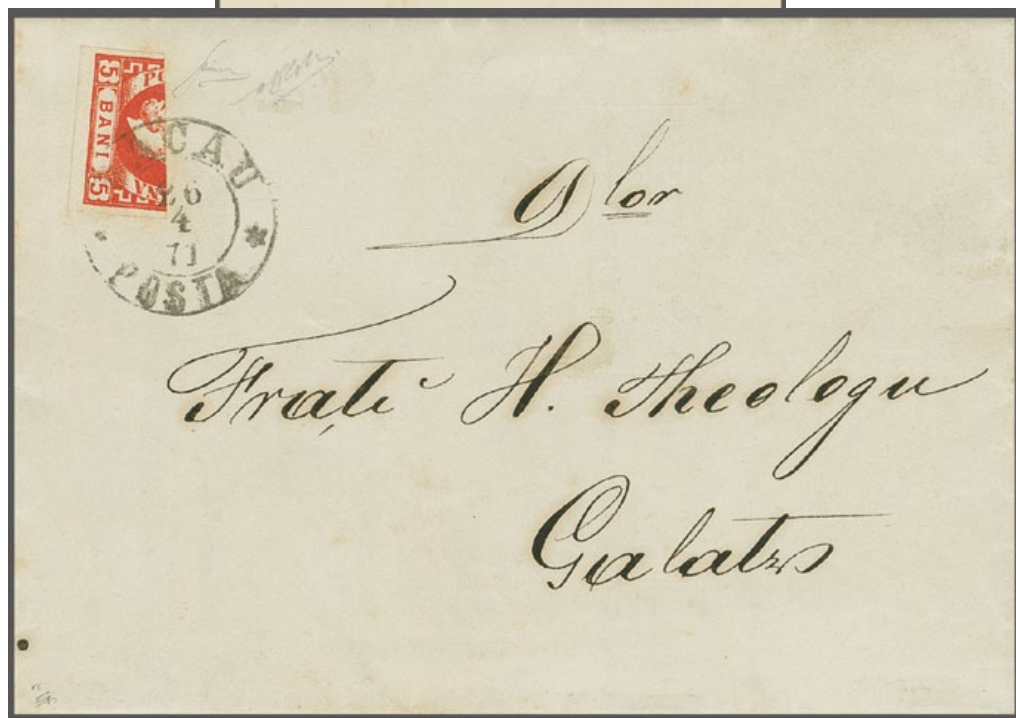 PO
5 BANI 5
CAU
26
4
71
POSTA
Dlor
Frați H. Theologu
Galatz